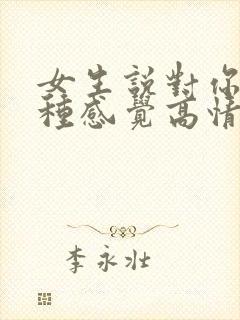 女生說對你
種感覺高情
李永壯